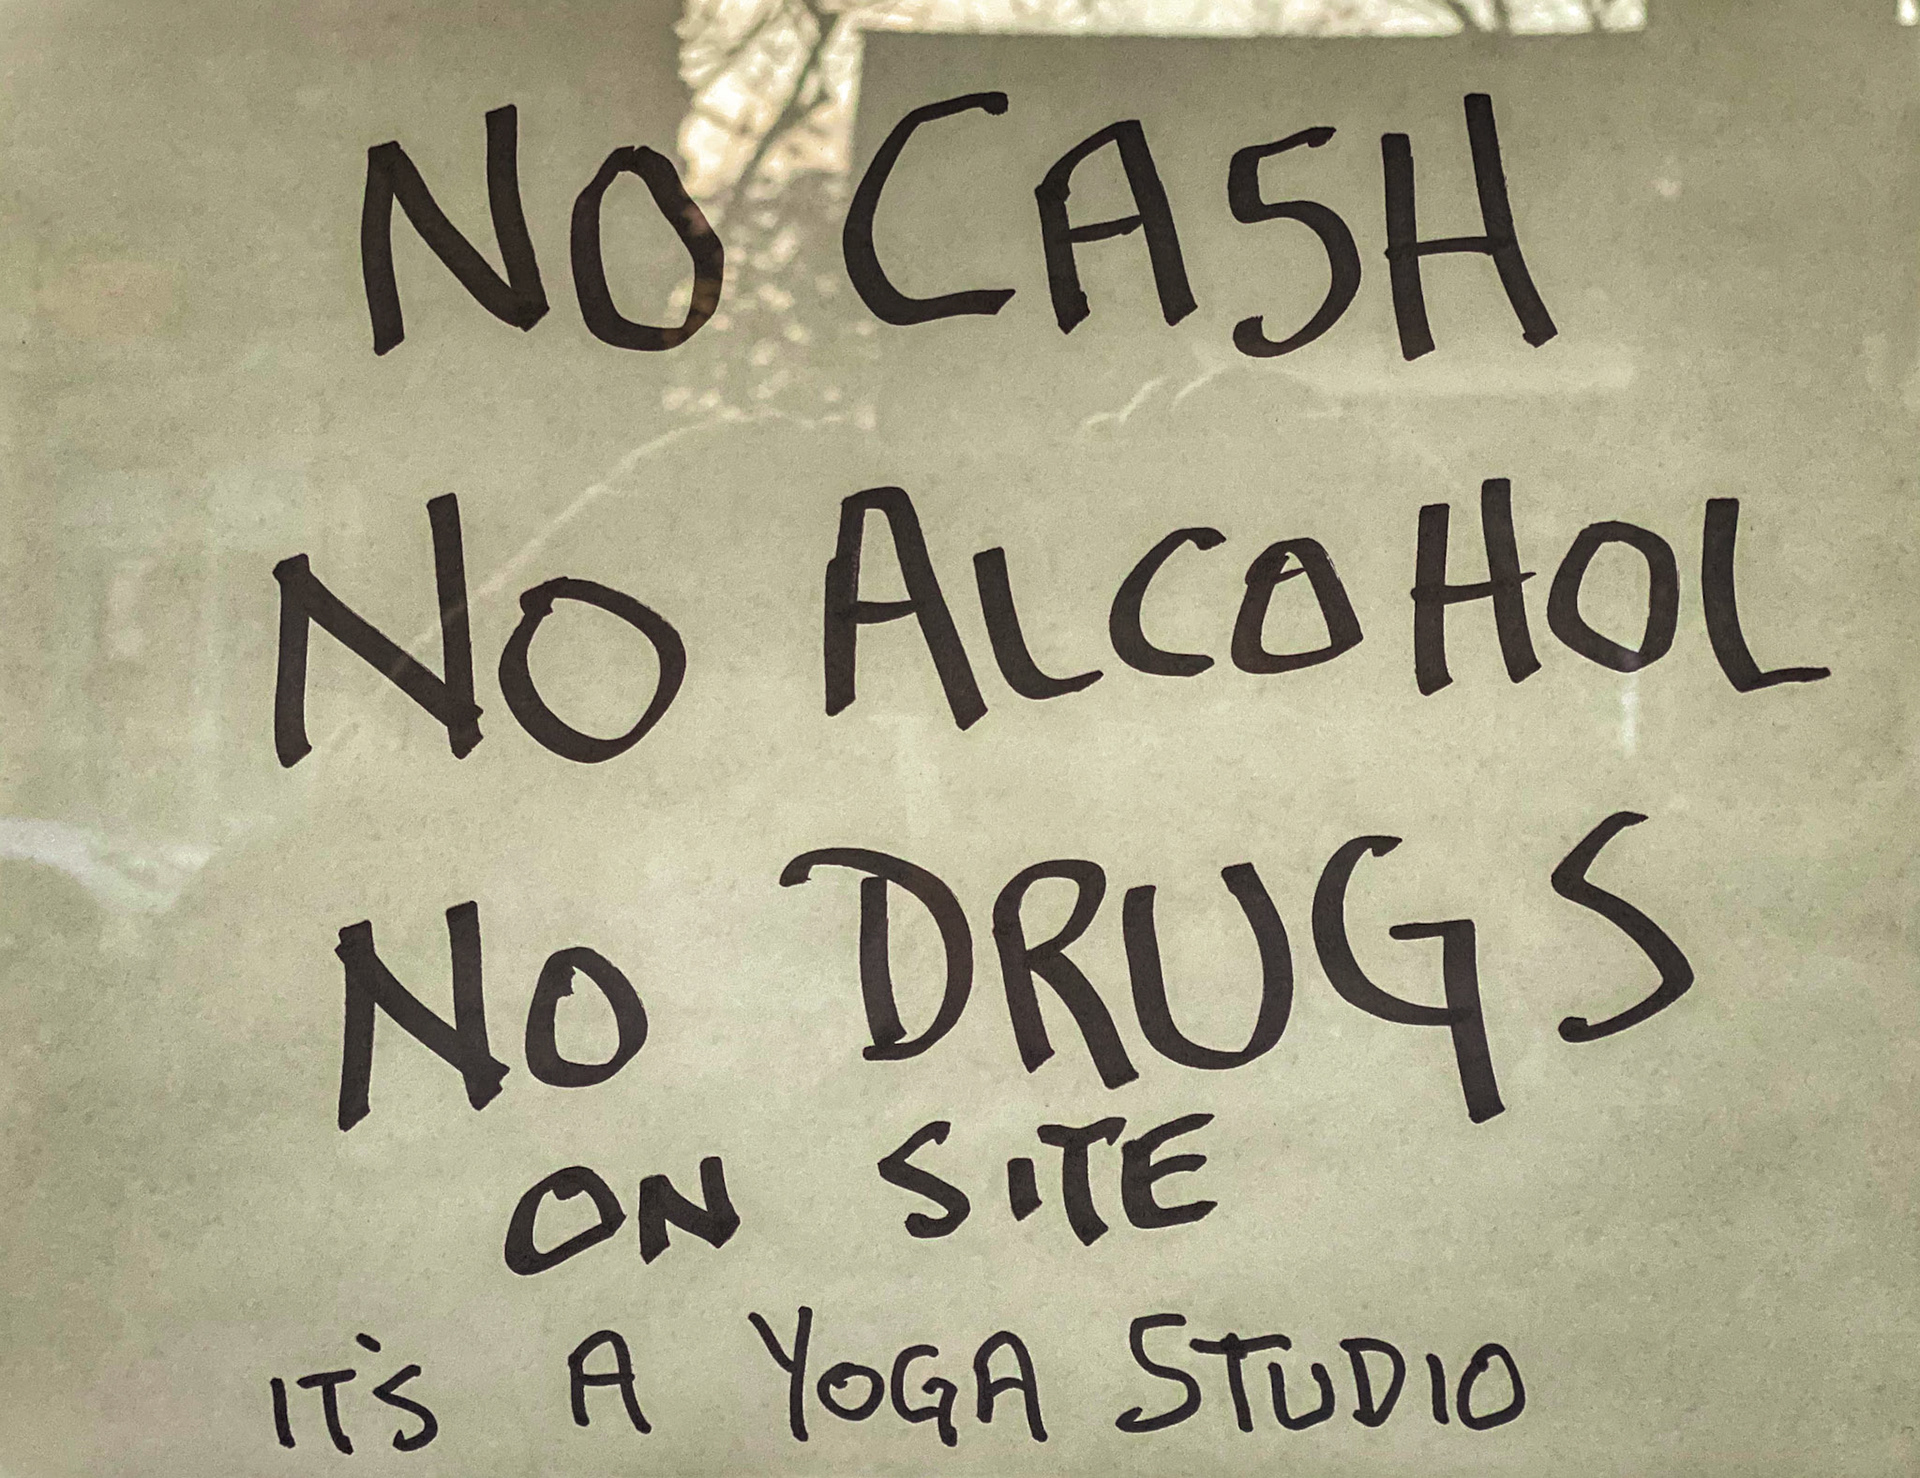 NO CASH
NO ALCOHOL
NO DRUGS
ON SITE
IT'S A YOGA STUDIO